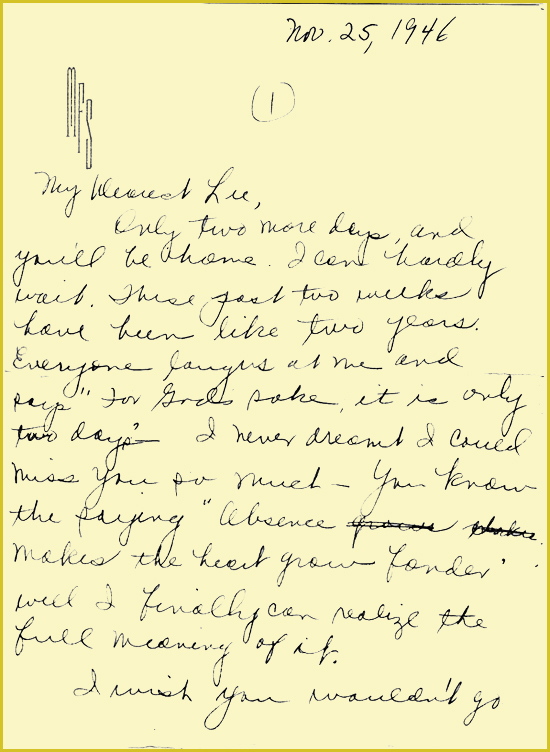 Nov. 25, 1946
1
My Dearest Lee,
Only two more days, and
you'll be home. I can hardly
wait. These past two weeks
have been like two years.
Everyone laughs at me and
says "For Gods sake, it is only
two days" I never dreamt I could
miss you so much - You know
the saying "Absence grows makes
makes the heart grow fonder"
well I finally can realize the
full meaning of it.
I wish you wouldn't go